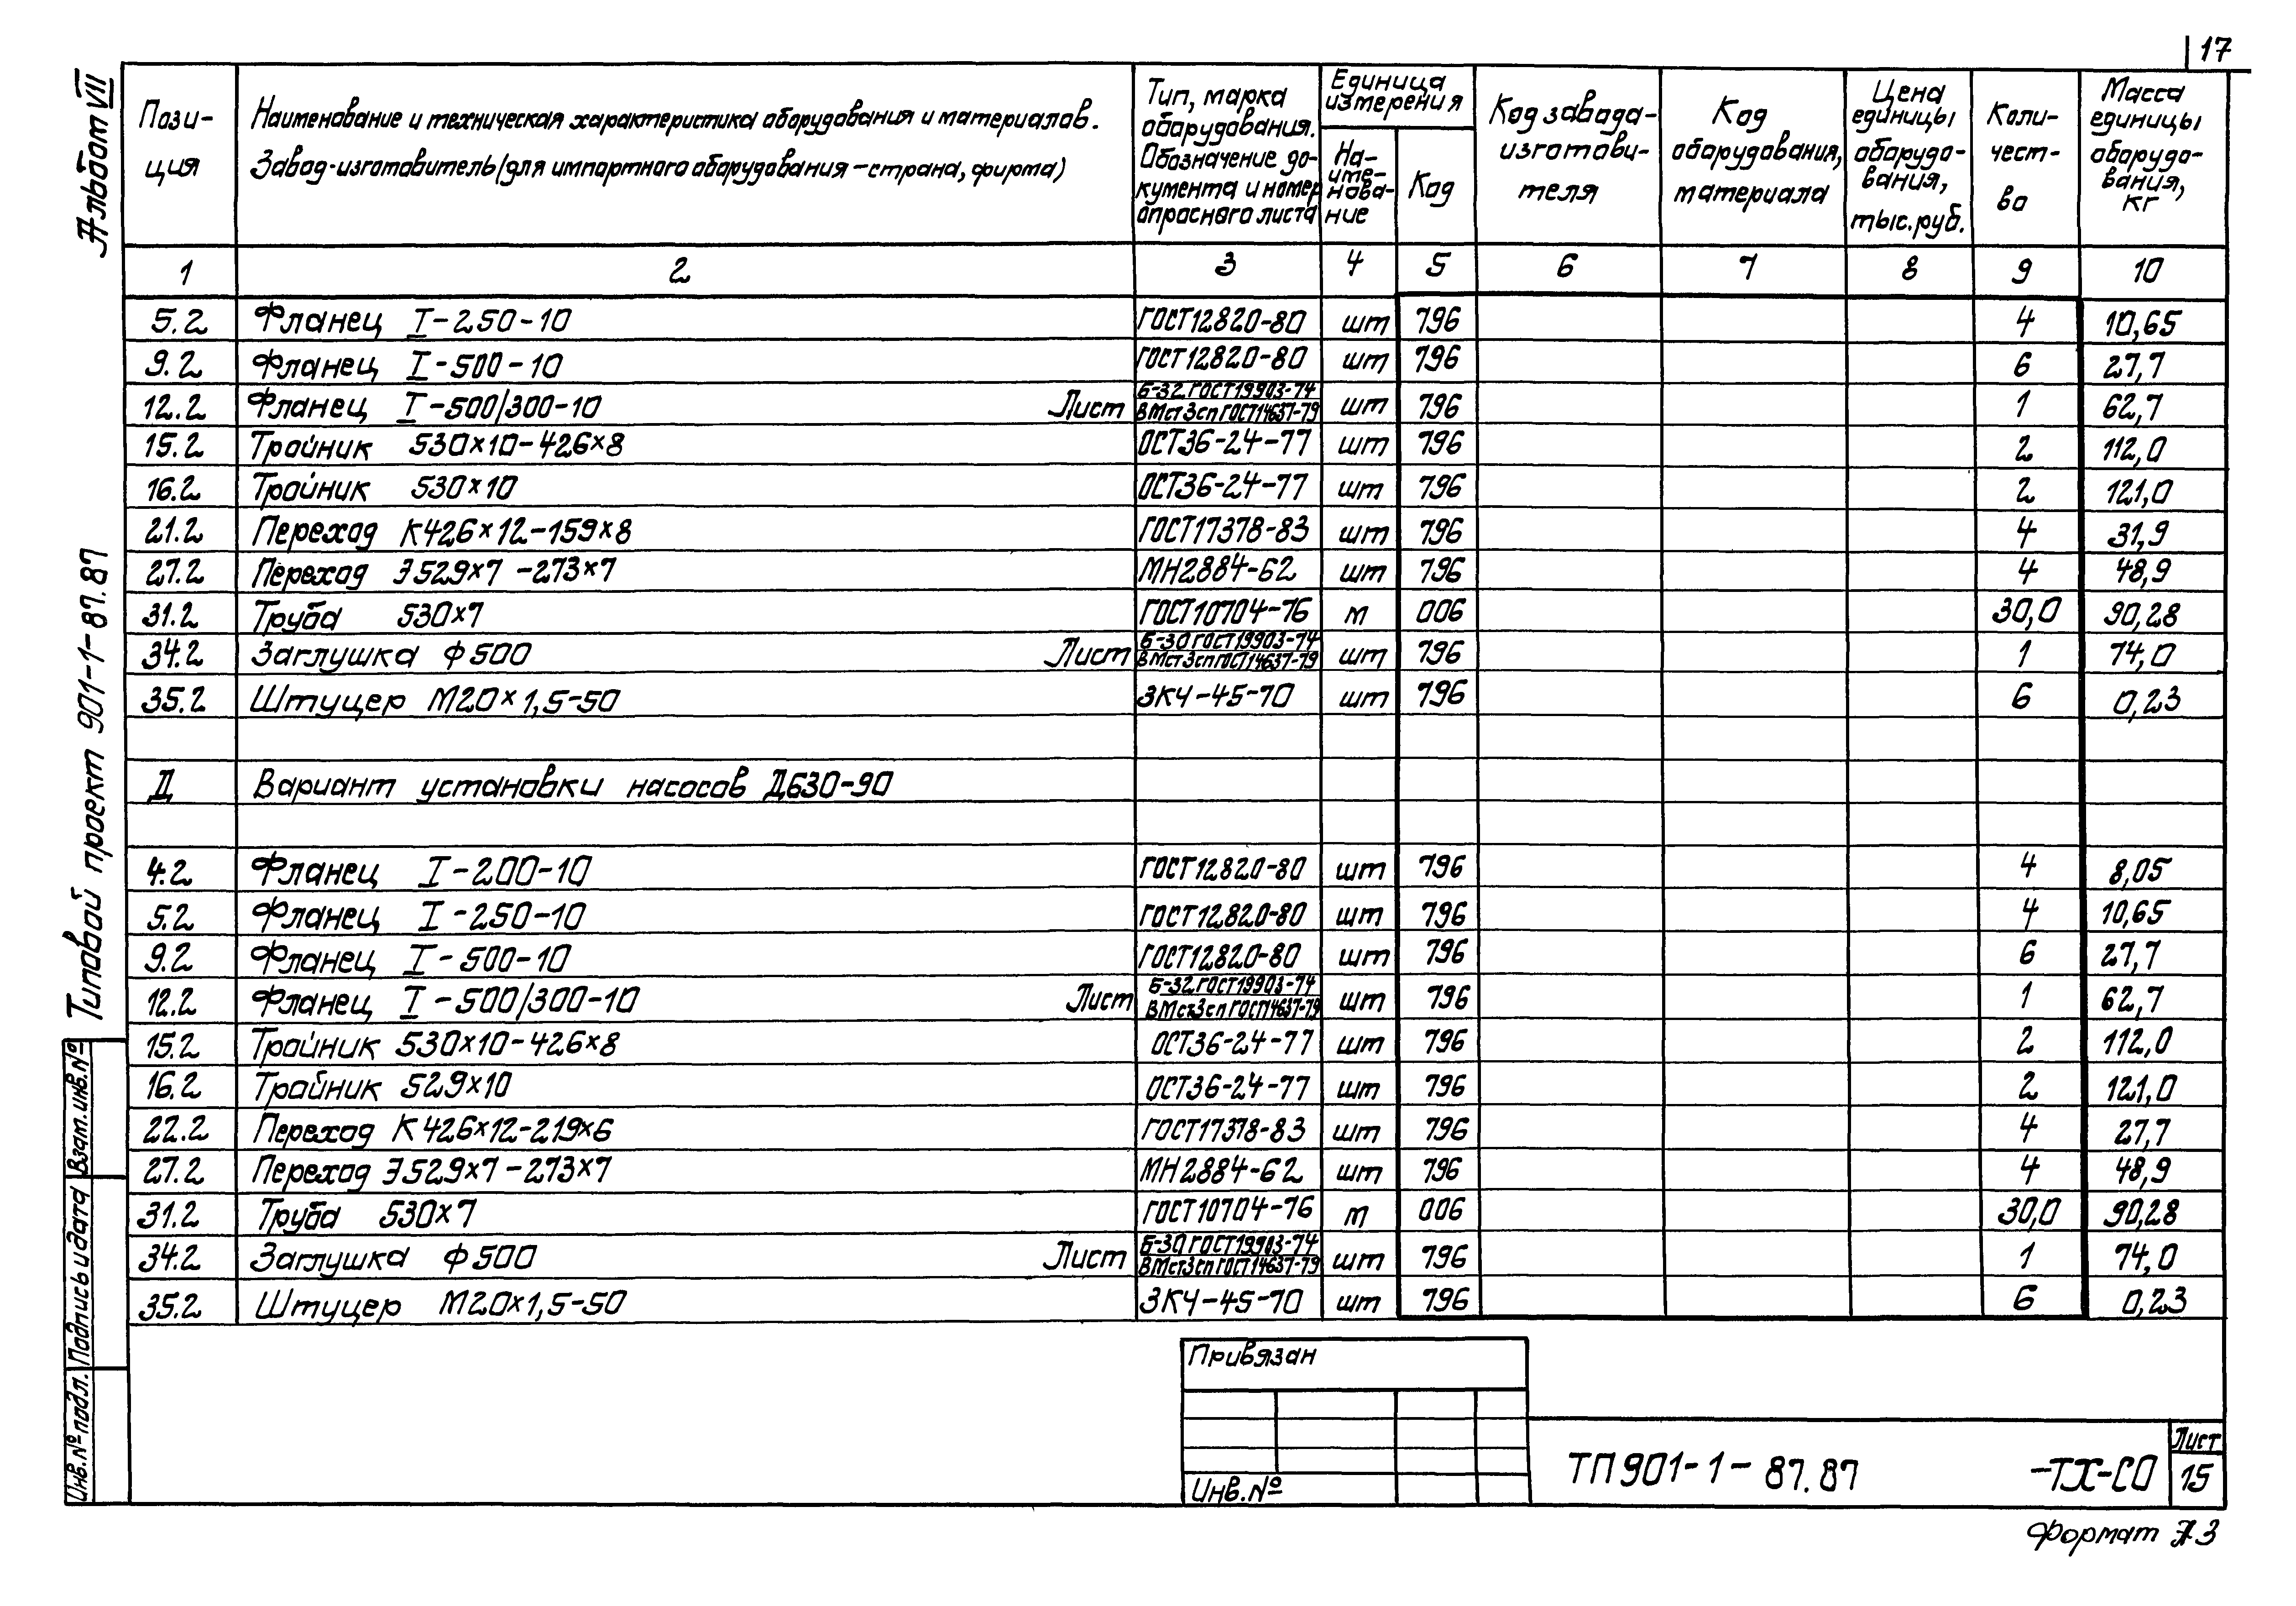 17
Альбом VII
Типовой проект 901-1-87.87
Взам.инв.№
Подпись и дата
Инв.№ подл.
Пози-
ция
Наименование и техническая характеристика оборудования и материалов.
Завод-изготовитель (для импортного оборудования – страна, фирма)
Тип, марка
оборудования.
Обозначение до-
кумента и номер
опросного листа
Единица
измерения
На-
име-
нова-
ние
Код
Код завода-
изготови-
теля
Код
оборудования,
материала
Цена
единицы
оборудо-
вания,
тыс.руб.
Коли-
чест-
во
Масса
единицы
оборудо-
вания,
кг
1 2 3 4 5 6 7 8 9 10
5.2 Фланец I-250-10 ГОСТ12820-80 шт 796 4 10,65
9.2 Фланец I-500-10 ГОСТ12820-80 шт 796 6 27,7
12.2 Фланец I-500/300-10 Лист Б-32 ГОСТ19903-74 / ВМст3сп ГОСТ14637-79 шт 796 1 62,7
15.2 Тройник 530×10-426×8 ОСТ36-24-77 шт 796 2 112,0
16.2 Тройник 530×10 ОСТ36-24-77 шт 796 2 121,0
21.2 Переход К426×12-159×8 ГОСТ17378-83 шт 796 4 31,9
27.2 Переход Э529×7-273×7 МН2884-62 шт 796 4 48,9
31.2 Труба 530×7 ГОСТ10704-76 м 006 30,0 90,28
34.2 Заглушка ф500 Лист Б-30 ГОСТ19903-74 / ВМст3сп ГОСТ14637-79 шт 796 1 74,0
35.2 Штуцер М20×1,5-50 ЗКЧ-45-70 шт 796 6 0,23
Д Вариант установки насосов Д630-90
4.2 Фланец I-200-10 ГОСТ12820-80 шт 796 4 8,05
5.2 Фланец I-250-10 ГОСТ12820-80 шт 796 4 10,65
9.2 Фланец I-500-10 ГОСТ12820-80 шт 796 6 27,7
12.2 Фланец I-500/300-10 Лист Б-32 ГОСТ19903-74 / ВМст3сп ГОСТ14637-79 шт 796 1 62,7
15.2 Тройник 530×10-426×8 ОСТ36-24-77 шт 796 2 112,0
16.2 Тройник 529×10 ОСТ36-24-77 шт 796 2 121,0
22.2 Переход К426×12-219×6 ГОСТ17378-83 шт 796 4 27,7
27.2 Переход Э529×7-273×7 МН2884-62 шт 796 4 48,9
31.2 Труба 530×7 ГОСТ10704-76 м 006 30,0 90,28
34.2 Заглушка ф500 Лист Б-30 ГОСТ19903-74 / ВМст3сп ГОСТ14637-79 шт 796 1 74,0
35.2 Штуцер М20×1,5-50 ЗКЧ-45-70 шт 796 6 0,23
Привязан
Инв.№
ТП 901-1-87.87 -ТХ-СО
Лист
15
Формат А3